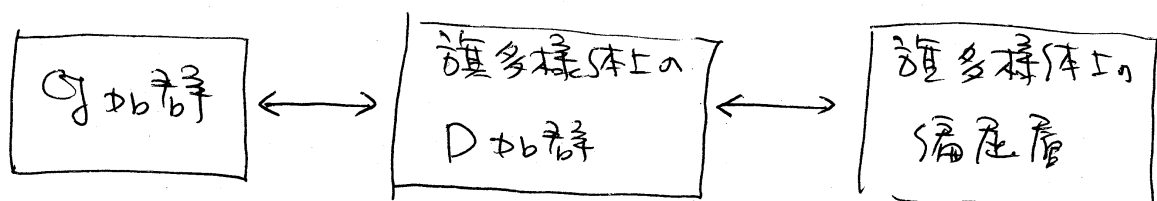 𝔤加群
旗多様体上の
D加群
旗多様体上の
偏屈層